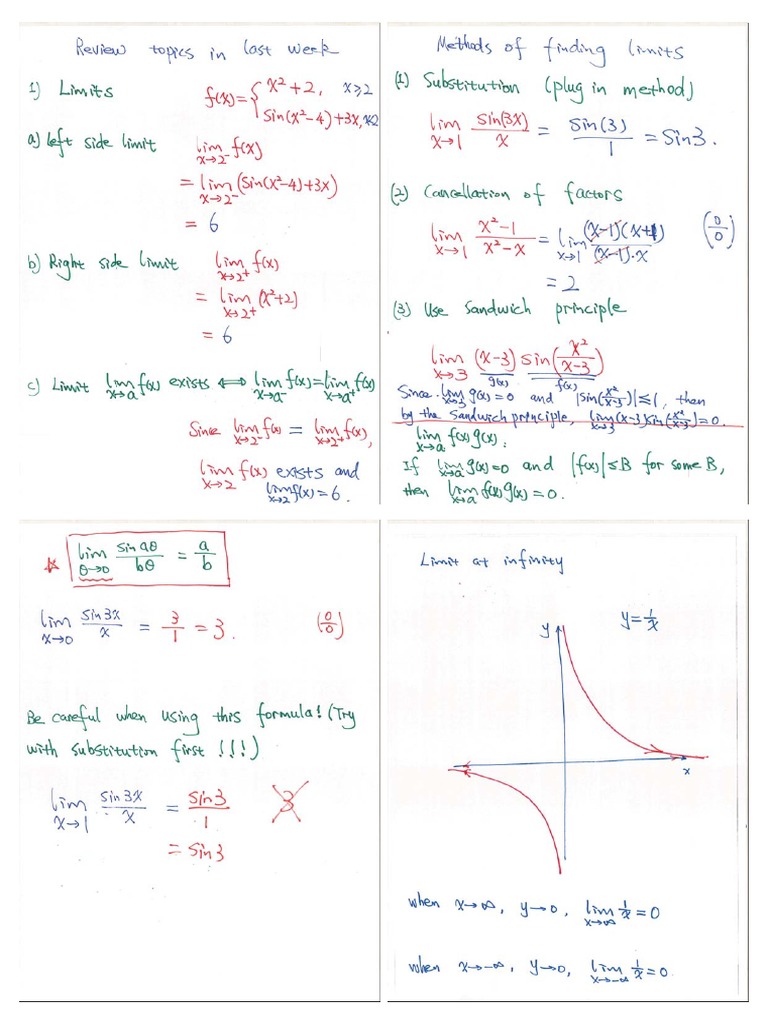 Review topics in last week
1) Limits f(x) = { x²+2, x⩾2
sin(x²-4)+3x, x<2
a) left side limit lim_{x→2⁻} f(x)
= lim_{x→2⁻} (sin(x²-4)+3x)
= 6
b) Right side limit lim_{x→2⁺} f(x)
= lim_{x→2⁺} (x²+2)
= 6
c) Limit lim_{x→a} f(x) exists ⟺ lim_{x→a⁻} f(x) = lim_{x→a⁺} f(x)
Since lim_{x→2⁻} f(x) = lim_{x→2⁺} f(x),
lim_{x→2} f(x) exists and
lim_{x→2} f(x) = 6.
Methods of finding limits
(1) Substitution (plug in method)
lim_{x→1} sin(3x)/x = sin(3)/1 = sin3.
(2) Cancellation of factors
lim_{x→1} (x²-1)/(x²-x) = lim_{x→1} (x-1)(x+1)/(x-1)·x (0/0)
= 2
(3) Use Sandwich principle
lim_{x→3} (x-3) sin(x²/(x-3))
g(x) f(x)
Since lim_{x→3} g(x)=0 and |sin(x²/(x-3))|≤1, then
by the Sandwich principle, lim_{x→3} (x-3)sin(x²/(x-3))=0.
lim_{x→a} f(x)g(x).
If lim_{x→a} g(x)=0 and |f(x)|≤B for some B,
then lim_{x→a} f(x)g(x)=0.
☆ lim_{θ→0} sin aθ/bθ = a/b
lim_{x→0} sin3x/x = 3/1 = 3. (0/0)
Be careful when using this formula! (Try
with substitution first !!!)
lim_{x→1} sin3x/x = sin3/1 3
= sin3
Limit at infinity
y y=1/x
x
when x→∞, y→0, lim_{x→∞} 1/x = 0
when x→-∞, y→0, lim_{x→-∞} 1/x = 0.